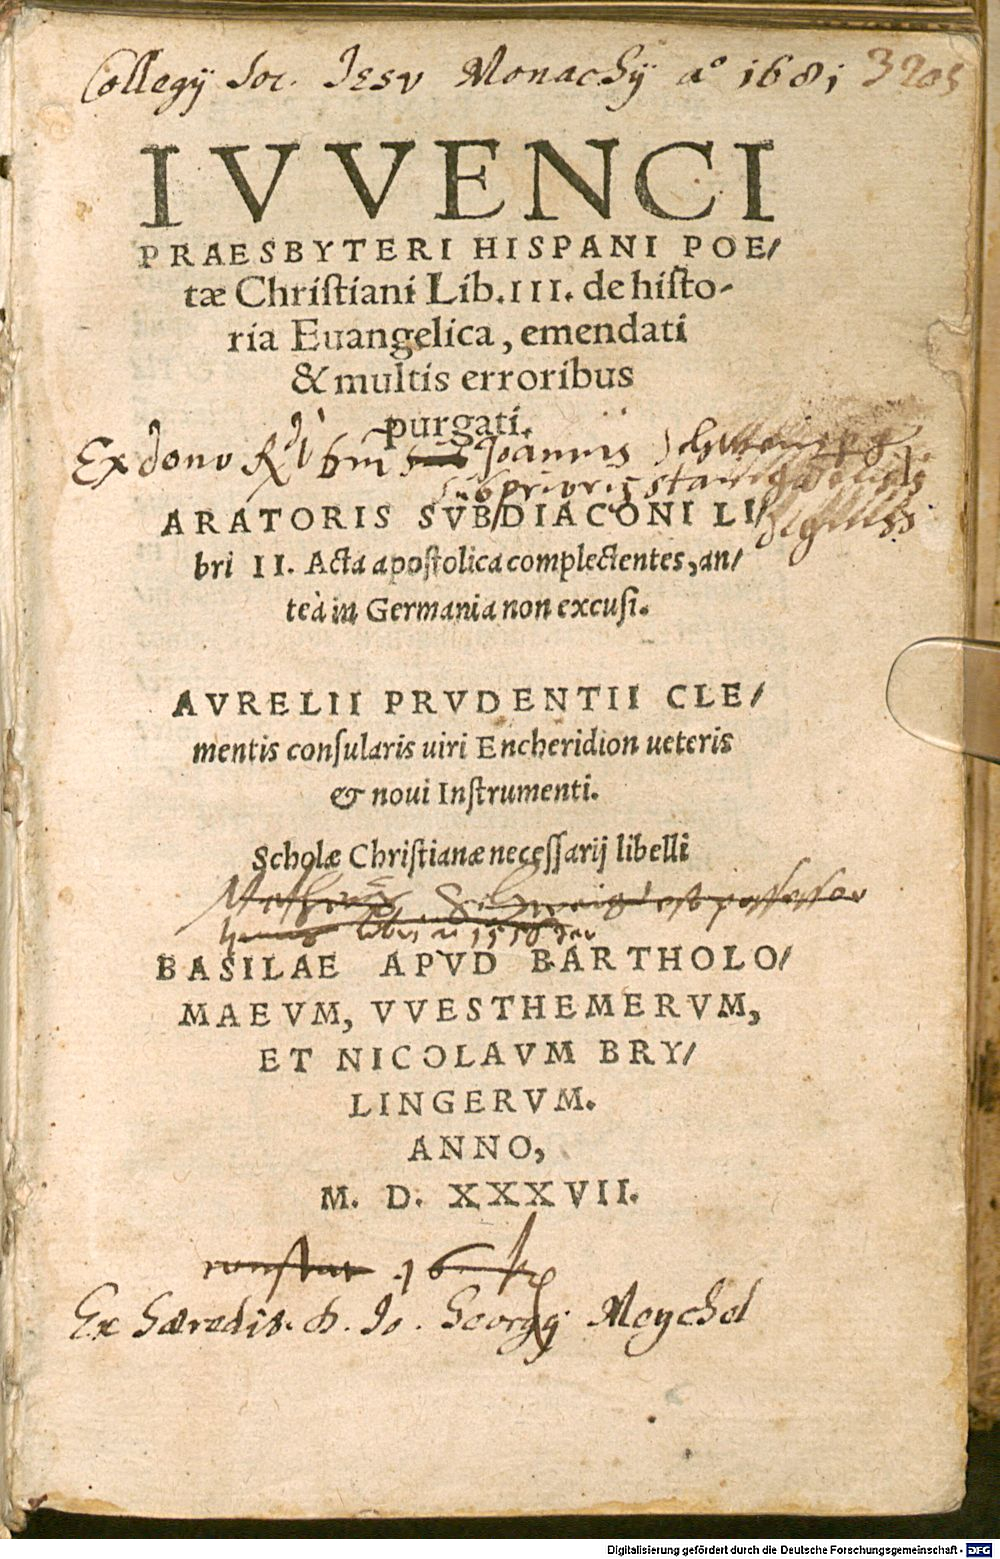 Collegij Soc. Jesv Monachij aº 1681 3205
IVVENCI
PRAESBYTERI HISPANI POE/
tæ Chriſtiani Lib.III. de hiſto-
ria Euangelica, emendati
& multis erroribus
purgati.
Ex dono Joannis
ſubprioris
ARATORIS SVBDIACONI LI/
bri II. Acta apoſtolica complectentes, an/
teà in Germania non excuſi.
AVRELII PRVDENTII CLE/
mentis conſularis uiri Encheridion ueteris
& noui Inſtrumenti.
Scholæ Chriſtianæ neceſſarij libelli
est poſſeſſor
libri
BASILAE APVD BARTHOLO/
MAEVM, VVESTHEMERVM,
ET NICOLAVM BRY/
LINGERVM.
ANNO,
M. D. XXXVII.
constat 16
Ex hæredit. D. Jo. Georgij Meychel
Digitalisierung gefördert durch die Deutsche Forschungsgemeinschaft - DFG